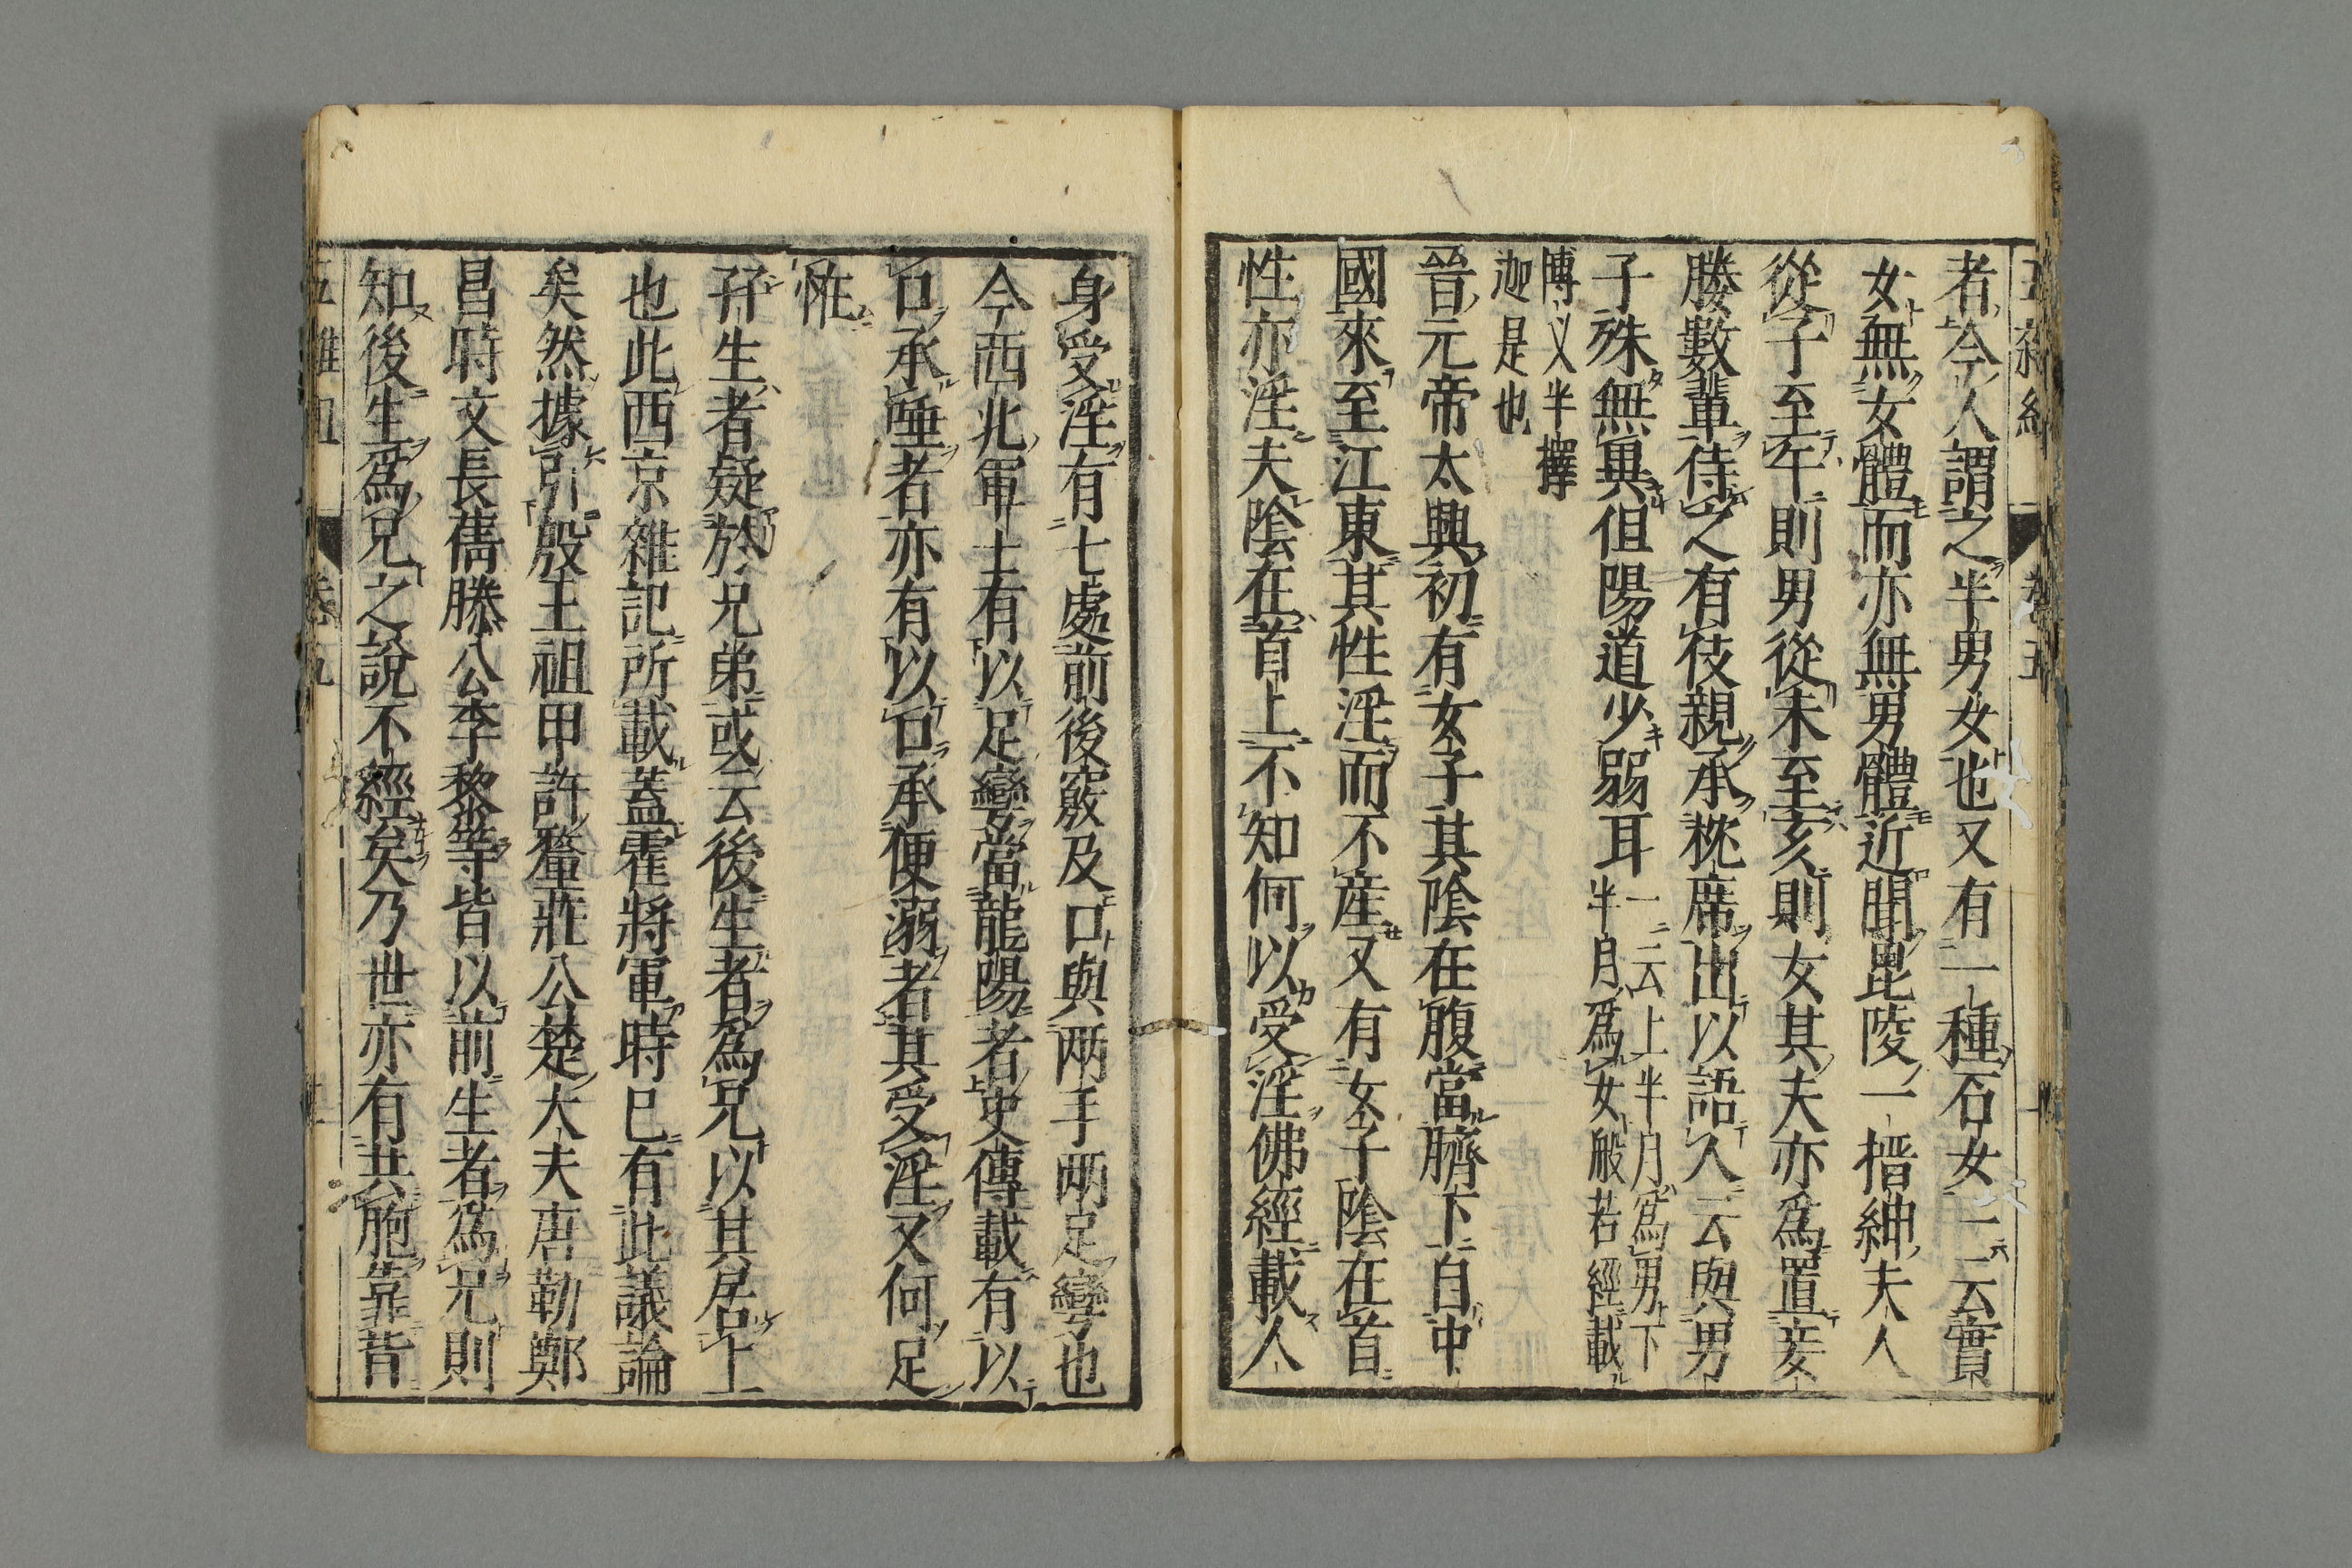 者今人謂之半男女也又有一種石女一云實
女無女體而亦無男體近聞毘陵一搢紳夫人
從子至午則男從未至亥則女其夫亦爲置妾
媵數輩侍之有伎親承枕席出以語人云與男
子殊無異但陽道少弱耳
一云上半月爲男下
半月爲女般若經載
博乂半擇
迦是也
晉元帝太興初有女子其陰在腹當臍下自中
國來至江東其性淫而不産又有女子陰在首
性亦淫夫陰在首上不知何以受淫佛經載人
身受淫有七處前後竅及口與两手两足孿也
今西北軍士有以足孿當龍陽者史傳載有以
口承唾者亦有以口承便溺者其受淫又何足
恠
孖生者疑於兄弟或云後生者爲兄以其居上
也此西京雜記所載蓋霍將軍時已有此議論
矣然據引殷王祖甲許釐莊公楚大夫唐勒鄭
昌時文長蒨滕公李黎等皆以前生者爲兄則
知後生爲兄之說不經矣乃世亦有共胞靠背